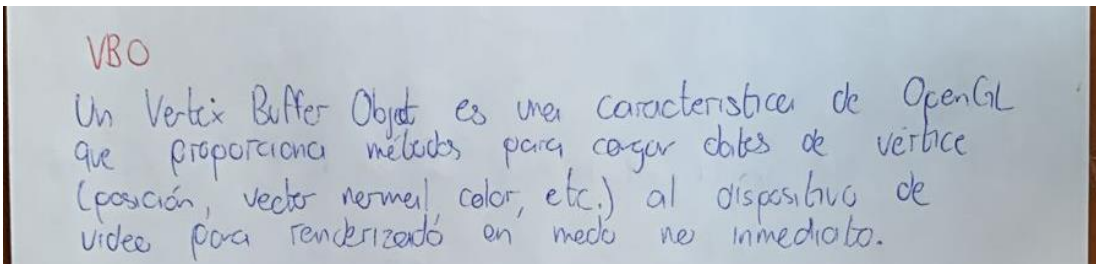 VBO
Un Vertix Buffer Objet es una caracteristica de OpenGL
que proporciona métodos para cargar datos de vértice
(posición, vector normal, color, etc.) al dispositivo de
video para renderizado en modo no inmediato.